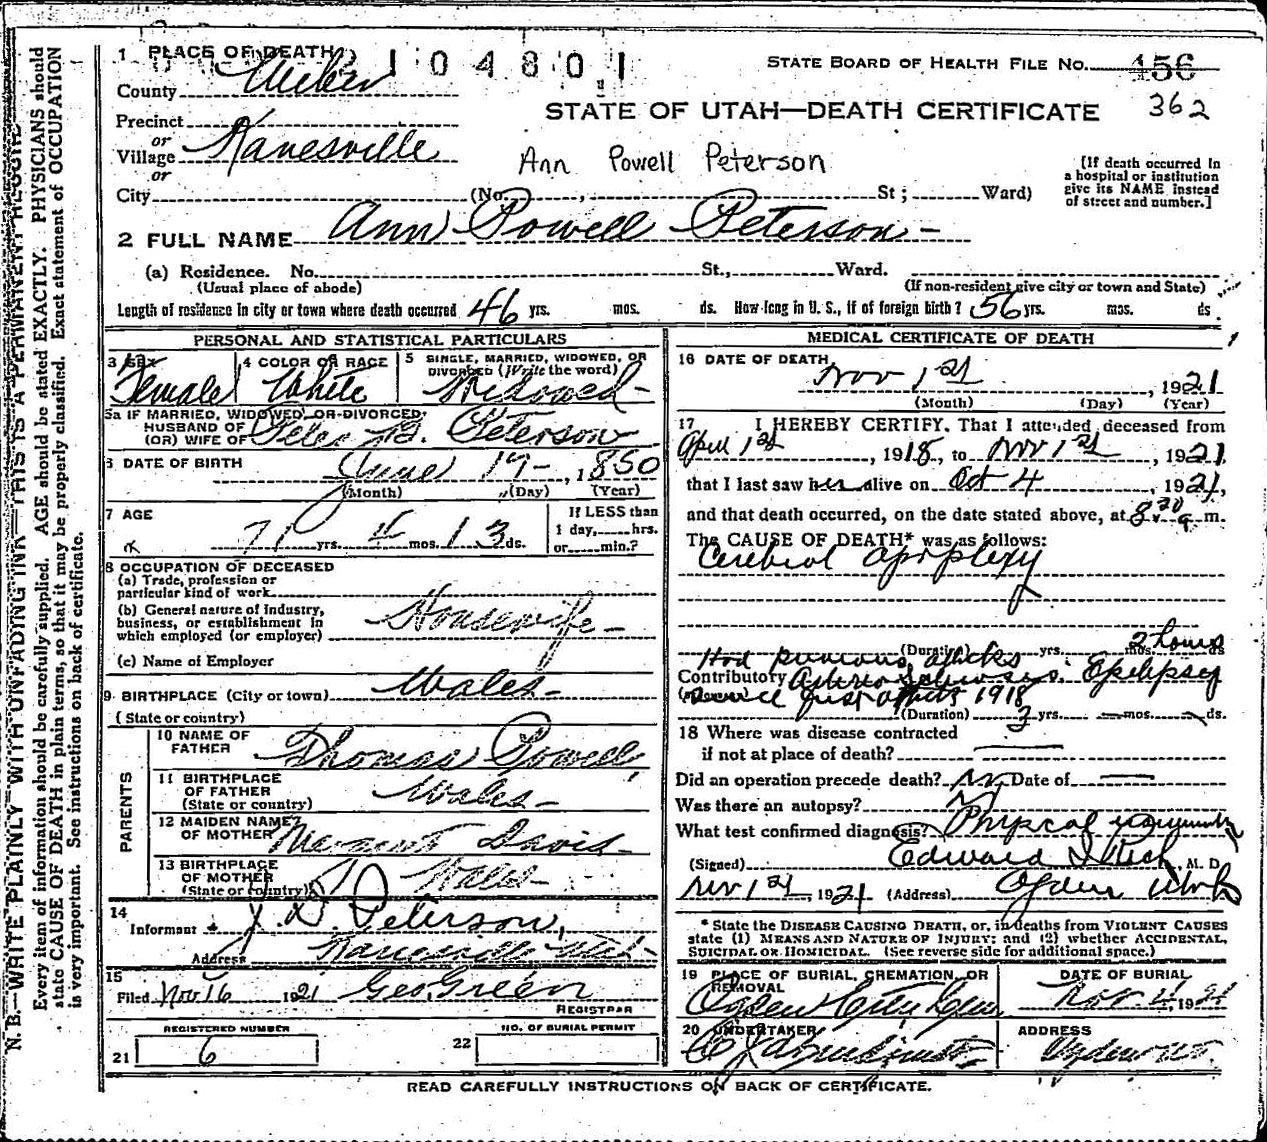 1 PLACE OF DEATH 104801
STATE BOARD OF HEALTH FILE NO. 456
County Weber
362
STATE OF UTAH—DEATH CERTIFICATE
Precinct
or
Village Kanesville
or
Ann Powell Peterson
[If death occurred in
a hospital or institution
give its NAME instead
of street and number.]
City (No. , St ; Ward)
2 FULL NAME Ann Powell Peterson -
(a) Residence. No. St., Ward.
(Usual place of abode) (If non-resident give city or town and State)
Length of residence in city or town where death occurred 46 yrs. mos. ds. How long in U. S., if of foreign birth? 56 yrs. mos. ds.
PERSONAL AND STATISTICAL PARTICULARS
3 SEX Female
4 COLOR OR RACE White
5 SINGLE, MARRIED, WIDOWED, OR
DIVORCED (Write the word)
Widowed -
5a IF MARRIED, WIDOWED, OR DIVORCED,
HUSBAND OF
(OR) WIFE OF Peterson
6 DATE OF BIRTH June 17 - , 1850
(Month) (Day) (Year)
7 AGE
71 yrs. 4 mos. 13 ds.
If LESS than
1 day, hrs.
or min.?
8 OCCUPATION OF DECEASED
(a) Trade, profession or
particular kind of work
(b) General nature of industry,
business, or establishment in
which employed (or employer)
Housewife -
(c) Name of Employer
9 BIRTHPLACE (City or town) Wales -
(State or country)
PARENTS
10 NAME OF
FATHER Thomas Powell
11 BIRTHPLACE
OF FATHER
(State or country)
Wales -
12 MAIDEN NAME
OF MOTHER Davis -
13 BIRTHPLACE
OF MOTHER
(State or country)
Wales -
14
Informant J. D. Peterson,
Address Kanesville Utah -
15
Filed Nov 16 1921 Geo. Green
REGISTRAR
REGISTERED NUMBER
21 6
NO. OF BURIAL PERMIT
22
MEDICAL CERTIFICATE OF DEATH
16 DATE OF DEATH
Nov 1st , 1921
(Month) (Day) (Year)
17 I HEREBY CERTIFY, That I attended deceased from
April 1st , 1918, to Nov 1st , 1921
that I last saw her alive on Oct 4 1921,
and that death occurred, on the date stated above, at 8 30 a m.
The CAUSE OF DEATH* was as follows:
Cerebral apoplexy
(Duration) yrs. mos. 2 hours ds.
Had previous attacks.
Contributory Arterio Sclerosis. Epilepsy
1918
(Duration) 3 yrs. — mos. — ds.
18 Where was disease contracted
if not at place of death?
Did an operation precede death? No Date of —
Was there an autopsy?
What test confirmed diagnosis? Physical
(Signed) Edward I Rich, M. D.
Nov 1st , 1921 (Address) Ogden Utah
* State the DISEASE CAUSING DEATH, or, in deaths from VIOLENT CAUSES
state (1) MEANS AND NATURE OF INJURY; and (2) whether ACCIDENTAL,
SUICIDAL OR HOMICIDAL. (See reverse side for additional space.)
19 PLACE OF BURIAL, CREMATION, OR
REMOVAL
Ogden City Cem
DATE OF BURIAL
Nov. 4, 1921
20 UNDERTAKER
ADDRESS
Ogden Ut.
READ CAREFULLY INSTRUCTIONS ON BACK OF CERTIFICATE.
N. B.—WRITE PLAINLY WITH UNFADING INK—THIS IS A PERMANENT RECORD
Every item of information should be carefully supplied. AGE should be stated EXACTLY. PHYSICIANS should
state CAUSE OF DEATH in plain terms, so that it may be properly classified. Exact statement of OCCUPATION
is very important. See instructions on back of certificate.